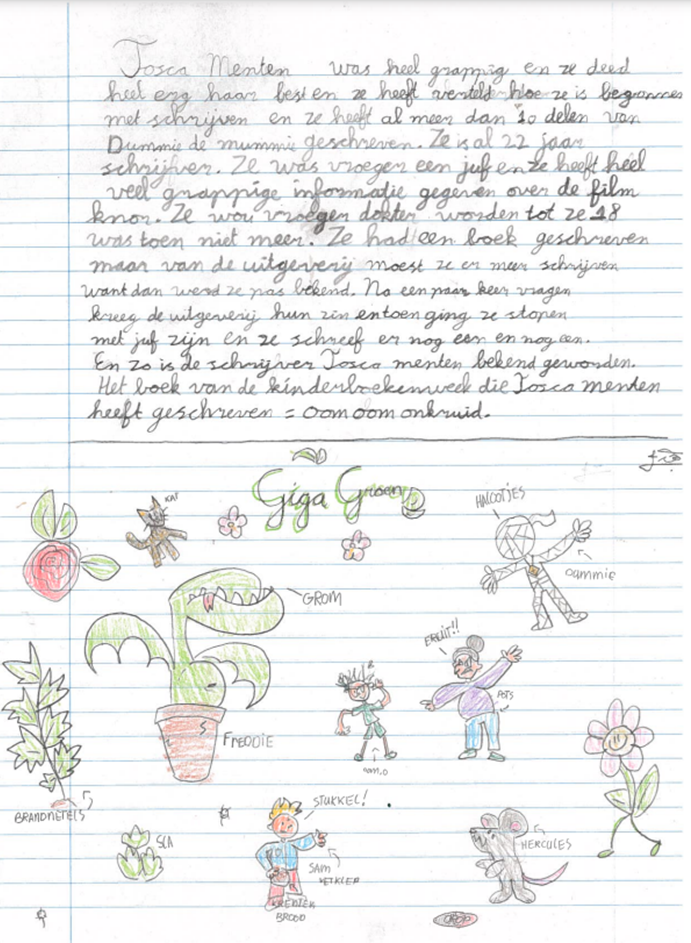 Tosca Menten was heel grappig en ze deed
heel erg haar best en ze heeft verteld hoe ze is begonnen
met schrijven en ze heeft al meer dan 10 delen van
Dummie de mummie geschreven. Ze is al 22 jaar
schrijver. Ze was vroeger een juf en ze heeft heel
veel grappige informatie gegeven over de film
knor. Ze wou vroeger dokter worden tot ze 18
was toen niet meer. Ze had een boek geschreven
maar van de uitgeverij moest ze er meer schrijven
want dan werd ze pas bekend. Na een paar keer vragen
kreeg de uitgeverij hun zin en toen ging ze stopen
met juf zijn en ze schreef er nog een en nog een.
En zo is de schrijver Tosca menten bekend geworden.
Het boek van de kinderboekenweek die Tosca menten
heeft geschreven = oom oom onkruid.
Giga Groen
KAT
HALOOTJES
GROM
DAMMIE
ERUIT!!
POTS
FREDDIE
BRANDNETELS
STUKKEL!
SLA
SAM
HERCULES
BROOD